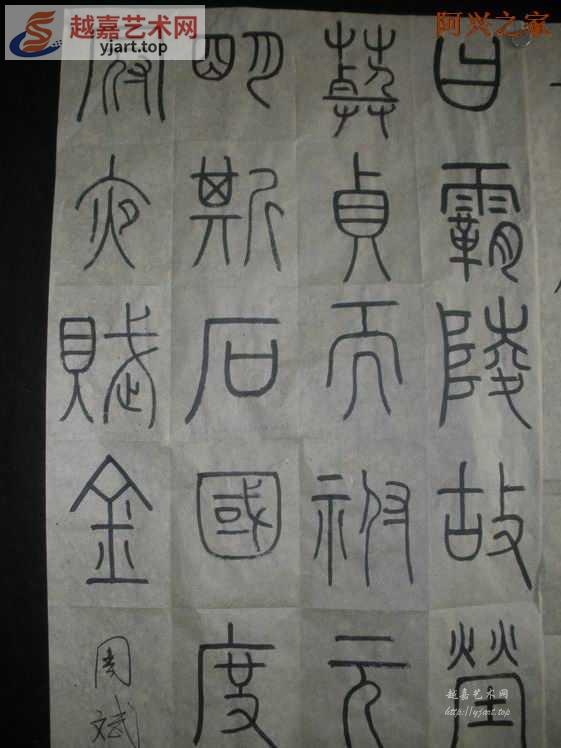 越嘉艺术网
yjart.top
阿兴之家
白霸陵故塋
葬貞而祔元
明斯石國度
府亦賦金
周斌
越嘉艺术网
http://yjart.top